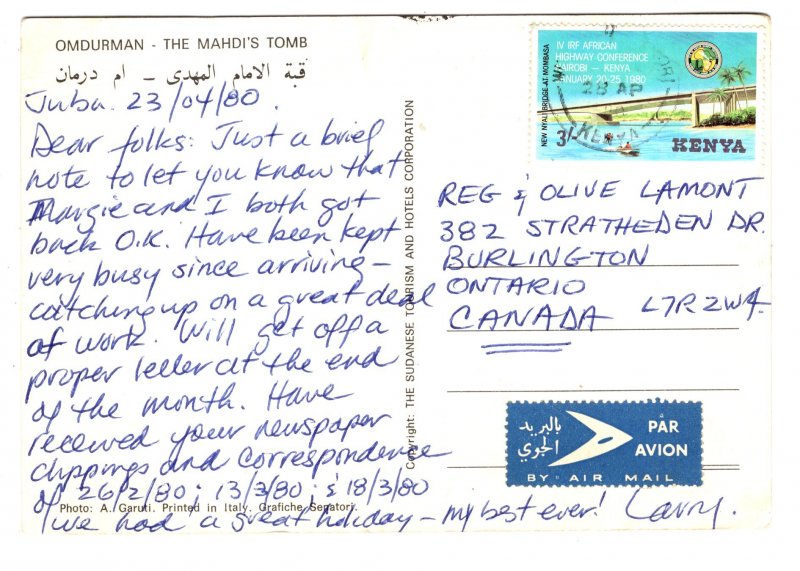 OMDURMAN - THE MAHDI'S TOMB
قبة الامام المهدى - ام درمان
Juba. 23/04/80.
Dear folks: Just a brief
note to let you know that
Margie and I both got
back O.K. Have been kept
very busy since arriving -
catching up on a great deal
of work. Will get off a
proper letter at the end
of the month. Have
received your newspaper
clippings and correspondence
of 26/2/80; 13/3/80 & 18/3/80
We had a great holiday - my best ever! Larry.
Photo: A. Garuti. Printed in Italy. Grafiche Senatori.
Copyright: THE SUDANESE TOURISM AND HOTELS CORPORATION
NEW NYALI BRIDGE-AT MOMBASA
IV IRF AFRICAN
HIGHWAY CONFERENCE
NAIROBI - KENYA
JANUARY 20-25 1980
28 AP
KENYA
3/-
KENYA
REG & OLIVE LAMONT
382 STRATHEDEN DR.
BURLINGTON
ONTARIO
CANADA L7R2W4
بالبريد
الجوي
PAR
AVION
BY AIR MAIL